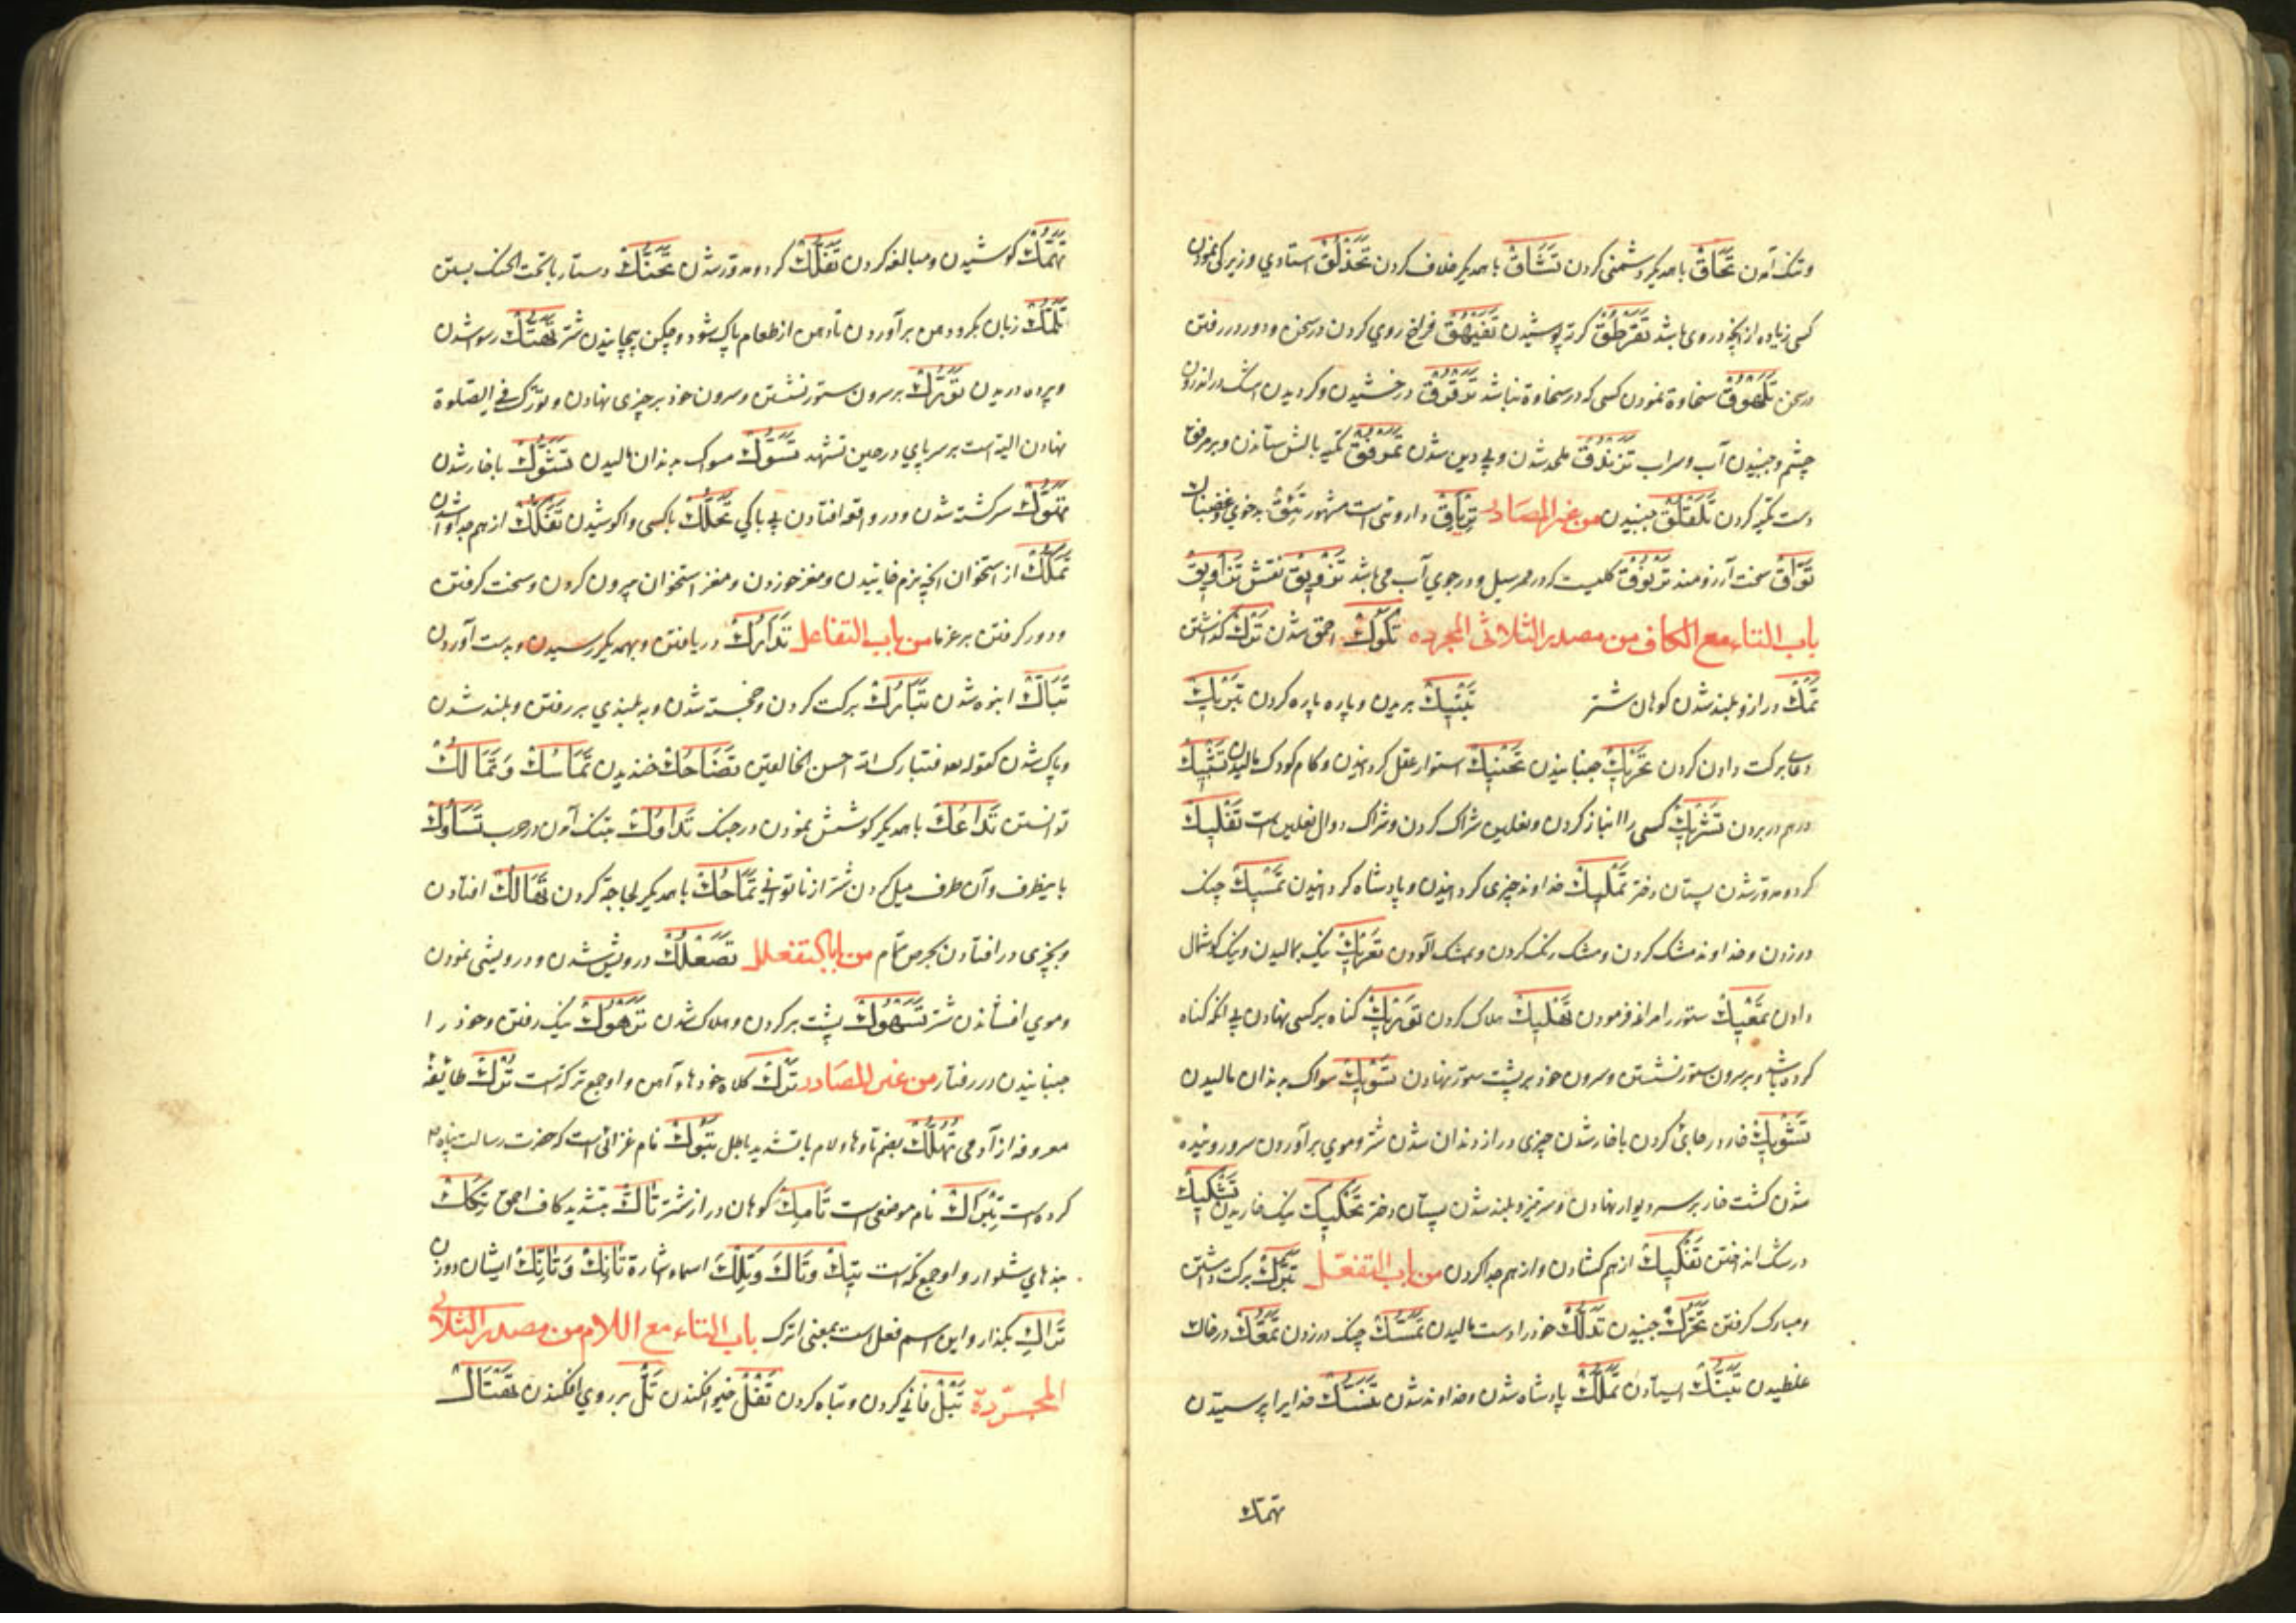 وتنک آمدن تَحَاقّ باهمدیکر دشمنی کردن تَشَاقّ باهمدیکر خلاف کردن تَحَذْلُقْ استادی و زیرکی نمودن
کسی زیاده از انچه در وی باشد تَقَرْطُقْ کرته پوشیدن تَفَیْهُقْ فراخ روی کردن در سخن و دور در رفتن
در سخن تَلَهْوُقْ سخاوة نمودن کسی که در سخاوة نباشد تَرَقْرُقْ درخشیدن و کردیدن اشک در اندرون
چشم و جنبیدن آب و سراب تَزَنْدُقْ ملحد شدن و بی دین شدن تَمَرْفُقْ تکیه بالش ستاندن و بر مرفق
دست تکیه کردن تَلَقْلُقْ جنبیدن من غیر المصادر تِرْیَاقْ داروئی است مشهور تَئِقْ بدخوی و غضبناک
تَوَّاقْ سخت آرزومند تُرْنُوقْ کلیست که در ممر سیل و در جوی آب می باشد تَزْوِیقْ نقش تَزَاوِیقْ
باب التاء مع الکاف من مصدر الثلاثی المجرده تُکُوکْ احمق شدن تَرْکْ کذاشتن
تَمْکْ دراز و بلند شدن کوهان شتر تَبْتِیکْ بریدن و پاره پاره کردن تَبْرِیکْ
دعای برکت دادن کردن تَحْرِیکْ جنبانیدن تَحْنِیکْ استوار عقل کردانیدن و کام کودک مالیدن تَشْبِیکْ
درهم در بردن تَشْرِیکْ کسی را انباز کردن و نعلین شراک کردن و شراک دوال نعلین است تَفْلِیکْ
کرد و مدور شدن پستان دختر تَمْلِیکْ خداوند چیزی کردانیدن و پادشاه کردانیدن تَمْسِیکْ چنک
در زدن و خداوند مشک کردن و مشک رنک کردن و بمشک آلودن تَعْرِیکْ نیک بمالیدن و نیک کوشمال
دادن تَمْعِیکْ ستور را مراغه فرمودن تَهْلِیکْ هلاک کردن تَوْرِیکْ کناه برکسی نهادن بی انکه کناه
کرده باشد و بر سرون ستور نشستن و سرون خود بر پشت ستور نهادن تَسْوِیکْ سواک بدندان مالیدن
تَشْوِیکْ خار در جائی کردن با خار شدن چیزی دراز دندان شدن شتر و موی برآوردن سر و روئیده
شدن کشت خار بر سر دیوار نهادن و سرتیز و بلند شدن پستان دختر تَحْکِیکْ نیک خاریدن تَشْکِیکْ
در شک انداختن تَفْکِیکْ ازهم کشادن و ازهم جدا کردن من باب التفعّل تَبَرُّکْ برکت داشتن
و مبارک کرفتن تَحَرُّکْ جنبیدن تَدَلُّکْ خود را دست مالیدن تَمَسُّکْ چنک در زدن تَمَعُّکْ در خاک
غلطیدن تَمَلُّکْ پادشاه شدن و خداوند شدن تَنَسُّکْ خدایرا پرستیدن
تهمک
تَهَمُّکْ کوشیدن و مبالغه کردن تَفَلُّکْ کرد و مدور شدن تَحَنُّکْ دستار با تحت الحنک بستن
تَلَمُّکْ زبان بکرد دهن برآوردن تا دهن از طعام پاک شود و چکن پیچانیدن شتر تَهَتُّکْ رسوا شدن
و پرده دریدن تَوَرُّکْ بر سرون ستور نشستن و سرون خود بر چیزی نهادن و تورک فی الصلوة
نهادن الیه است بر سر پای در حین تشهد تَسَوُّکْ مسواک بدندان مالیدن تَشَوُّکْ با خار شدن
تَهَوُّکْ سرکشته شدن و در واقعه افتادن بی باکی تَحَکُّکْ باکسی واکوشیدن تَفَکُّکْ ازهم جدا و اشدن
تَمَکُّکْ از استخوان انچه بزم خانیدن و مغز خوردن و مغز استخوان بیرون کردن و سخت کرفتن
و دور کرفتن بر غرما من باب التفاعل تَدَارُکْ دریافتن و بهمدیکر رسیدن و بدست آوردن
تَبَاکّ انبوه شدن تَبَارُکْ برکت کردن و خجسته شدن و به بلندی بر رفتن و بلند شدن
و پاک شدن کقوله تعه فتبارک الله احسن الخالقین تَضَاحُکْ خندیدن تَمَاسُکْ وَ تَمَالُکْ
توانستن تَدَاعُکْ باهمدیکر کوشش نمودن در جنک تَدَاوُکْ بتنک آمدن در حرب تَسَاوُکْ
باینطرف و آن طرف میل کردن شتر از ناتوانی تَمَاحُکْ باهمدیکر لجاجة کردن تَهَالُکْ افتادن
و بچیزی در افتادن بحرص تمام من باب التفعلل تَصَعْلُکْ درویش شدن و درویشی نمودن
و موی افشاندن شتر تَسَهْوُکْ پشت بر کردن و هلاک شدن تَرَهْوُکْ نیک رفتن و خود را
جنبانیدن در رفتار من غیر المصادر تَرْکْ کلاه خودها و آهن و او جمع ترکة است تُرْکْ طائفه
معروفه از آدمی تُهُلُّکْ بضم تا و ها و لام با تشدید باطل تَبُوکْ نام غزائی است که حضرت رسالت پناه
کرده است تِبْرَاکْ نام موضعی است تَامِکْ کوهان دراز شتر تَاکّ بتشدید کاف احمق تِکَکْ
بندهای شلوار و او جمع تکه است تِیکَ وَ تَاکَ وَ تِلْکَ اسماء اشارة تَانِکَ وَ تَانِّکَ ایشان دو زن
تَرَاکِ بکذار و این اسم فعل است بمعنی اترک باب التاء مع اللام من مصدر الثلاثی
المجرّدة تَبْلْ فانی کردن و تباه کردن تَفْلْ خیو افکندن تَلّ بر روی افکندن تَقْتَالْ